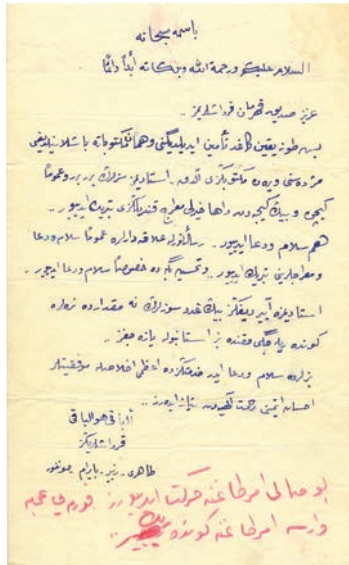 باسمه سبحانه
السلام عليكم ورحمة الله وبركاته أبداً دائماً
عزيز صديق قهرمان قرداشلريمز ..
كاغد تأمين ايديلديگنى وهمان مكتوباته باشلانيلديغنى
مژده سنى ويرن مكتوبكزى آلدق. استاديمز سزلرى برر برر وعموماً
كيچن و بيك كيجه دن داها خيرلى معراج قنديلكزى تبريك ايديور ..
هم سلام ودعا ايديور .. رسالهٔ نورله علاقه دارلره عموماً سلام ودعا
ومعراجلرينى تبريك ايديور .. خصوصاً سلام ودعا ايديور ..
استاديمزه بيك عدد سوزلرك نه مقدارده نره لره
كوندريله جگى حقنده بز استانبوله يازه جغز ..
بزلرده سلام ودعا ايدر خدمتكزده اعظمى اخلاصله موفقيتلر
احسان ايتمسنى رحمت الهيه دن نياز ايدرز ..
الباقى هو الباقى
قرداشلريكز
طاهرى ، زبير ، بايرام ،
بو صالى اميرطاغنه حركت ايديورز
وارسه اميرطاغنه كوندره